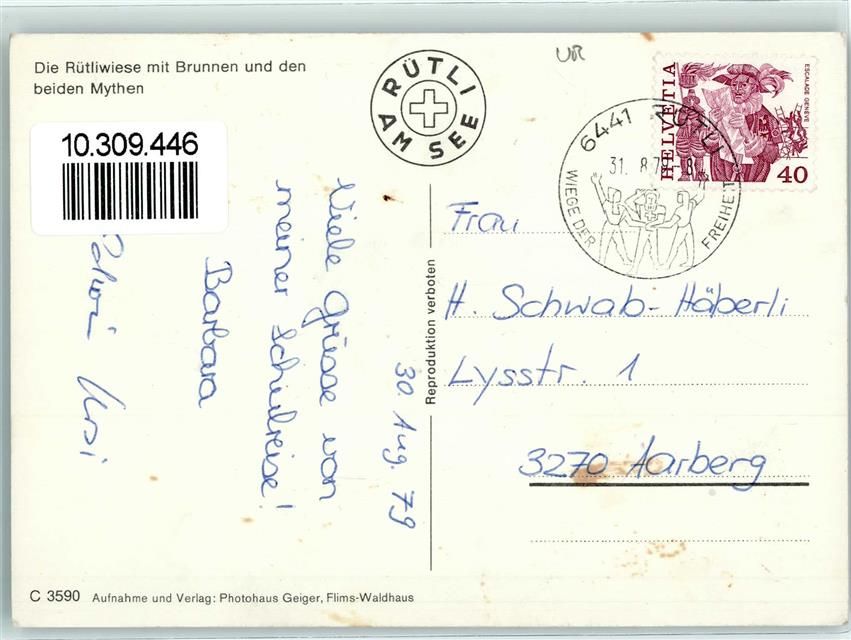 Die Rütliwiese mit Brunnen und den
beiden Mythen
10.309.446
RÜTLI
AM SEE
UR
HELVETIA
ESCALADE GENÈVE
40
6441 RÜTLI
31. 8.79 - 8
WIEGE DER FREIHEIT
30. Aug. 79
Viele Grüsse von
meiner Schulreise!
Barbara
Reproduktion verboten
Frau
H. Schwab-Häberli
Lysstr. 1
3270 Aarberg
C 3590 Aufnahme und Verlag: Photohaus Geiger, Flims-Waldhaus